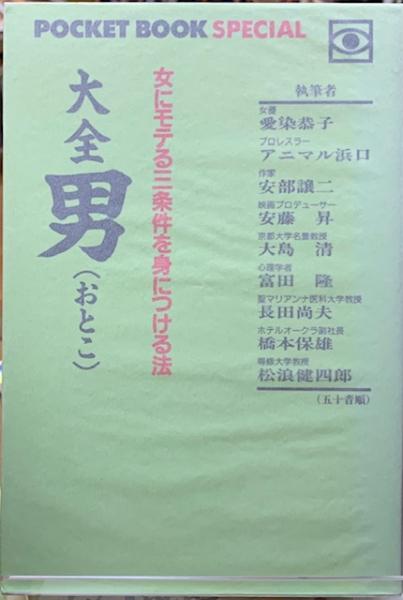 POCKET BOOK SPECIAL
大全
男
(おとこ)
女にモテる二条件を身につける法
執筆者
女優
愛染恭子
プロレスラー
アニマル浜口
作家
安部譲二
映画プロデューサー
安藤 昇
京都大学名誉教授
大島 清
心理学者
富田 隆
聖マリアンナ医科大学教授
長田尚夫
ホテルオークラ副社長
橋本保雄
専修大学教授
松浪健四郎
(五十音順)